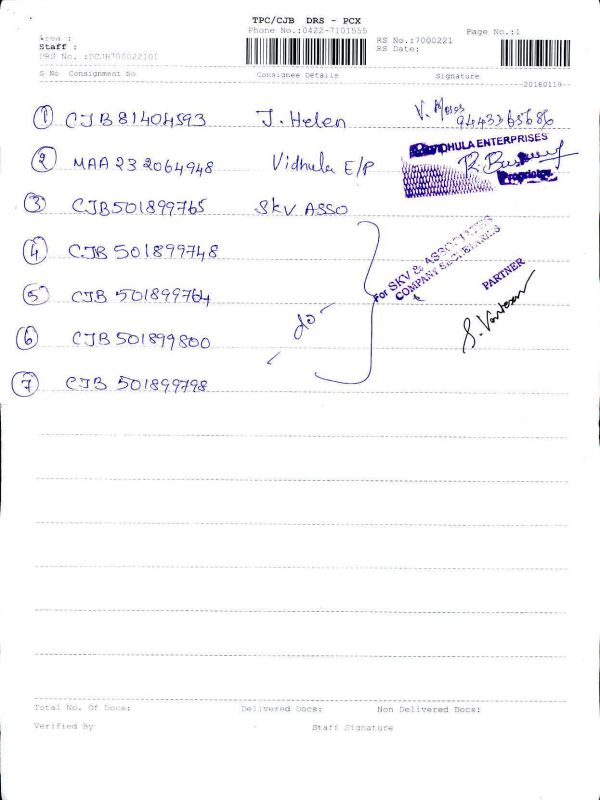 TPC/CJB DRS - PCX
Phone No.:0422-7101555
RS No.:7000221
Page No.:1
Area :
Staff :
RS Date:
DRS No. :DCJB700022101
S No Consignment No Consignee Details Signature
20180119
1 CJB81404593 J. Helen V. Moses 9443365686
2 MAA 232064948 Vidhula E/P VIDHULA ENTERPRISES
Proprietor
3 CJB501899765 SKV ASSO
4 CJB 501899748 For SKV & ASSOCIATES
COMPANY SECRETARIES
PARTNER
5 CJB 501899764
do
6 CJB 501899800
7 CJB 501899798
Total No. Of Docs: Delivered Docs: Non Delivered Docs:
Verified By Staff Signature